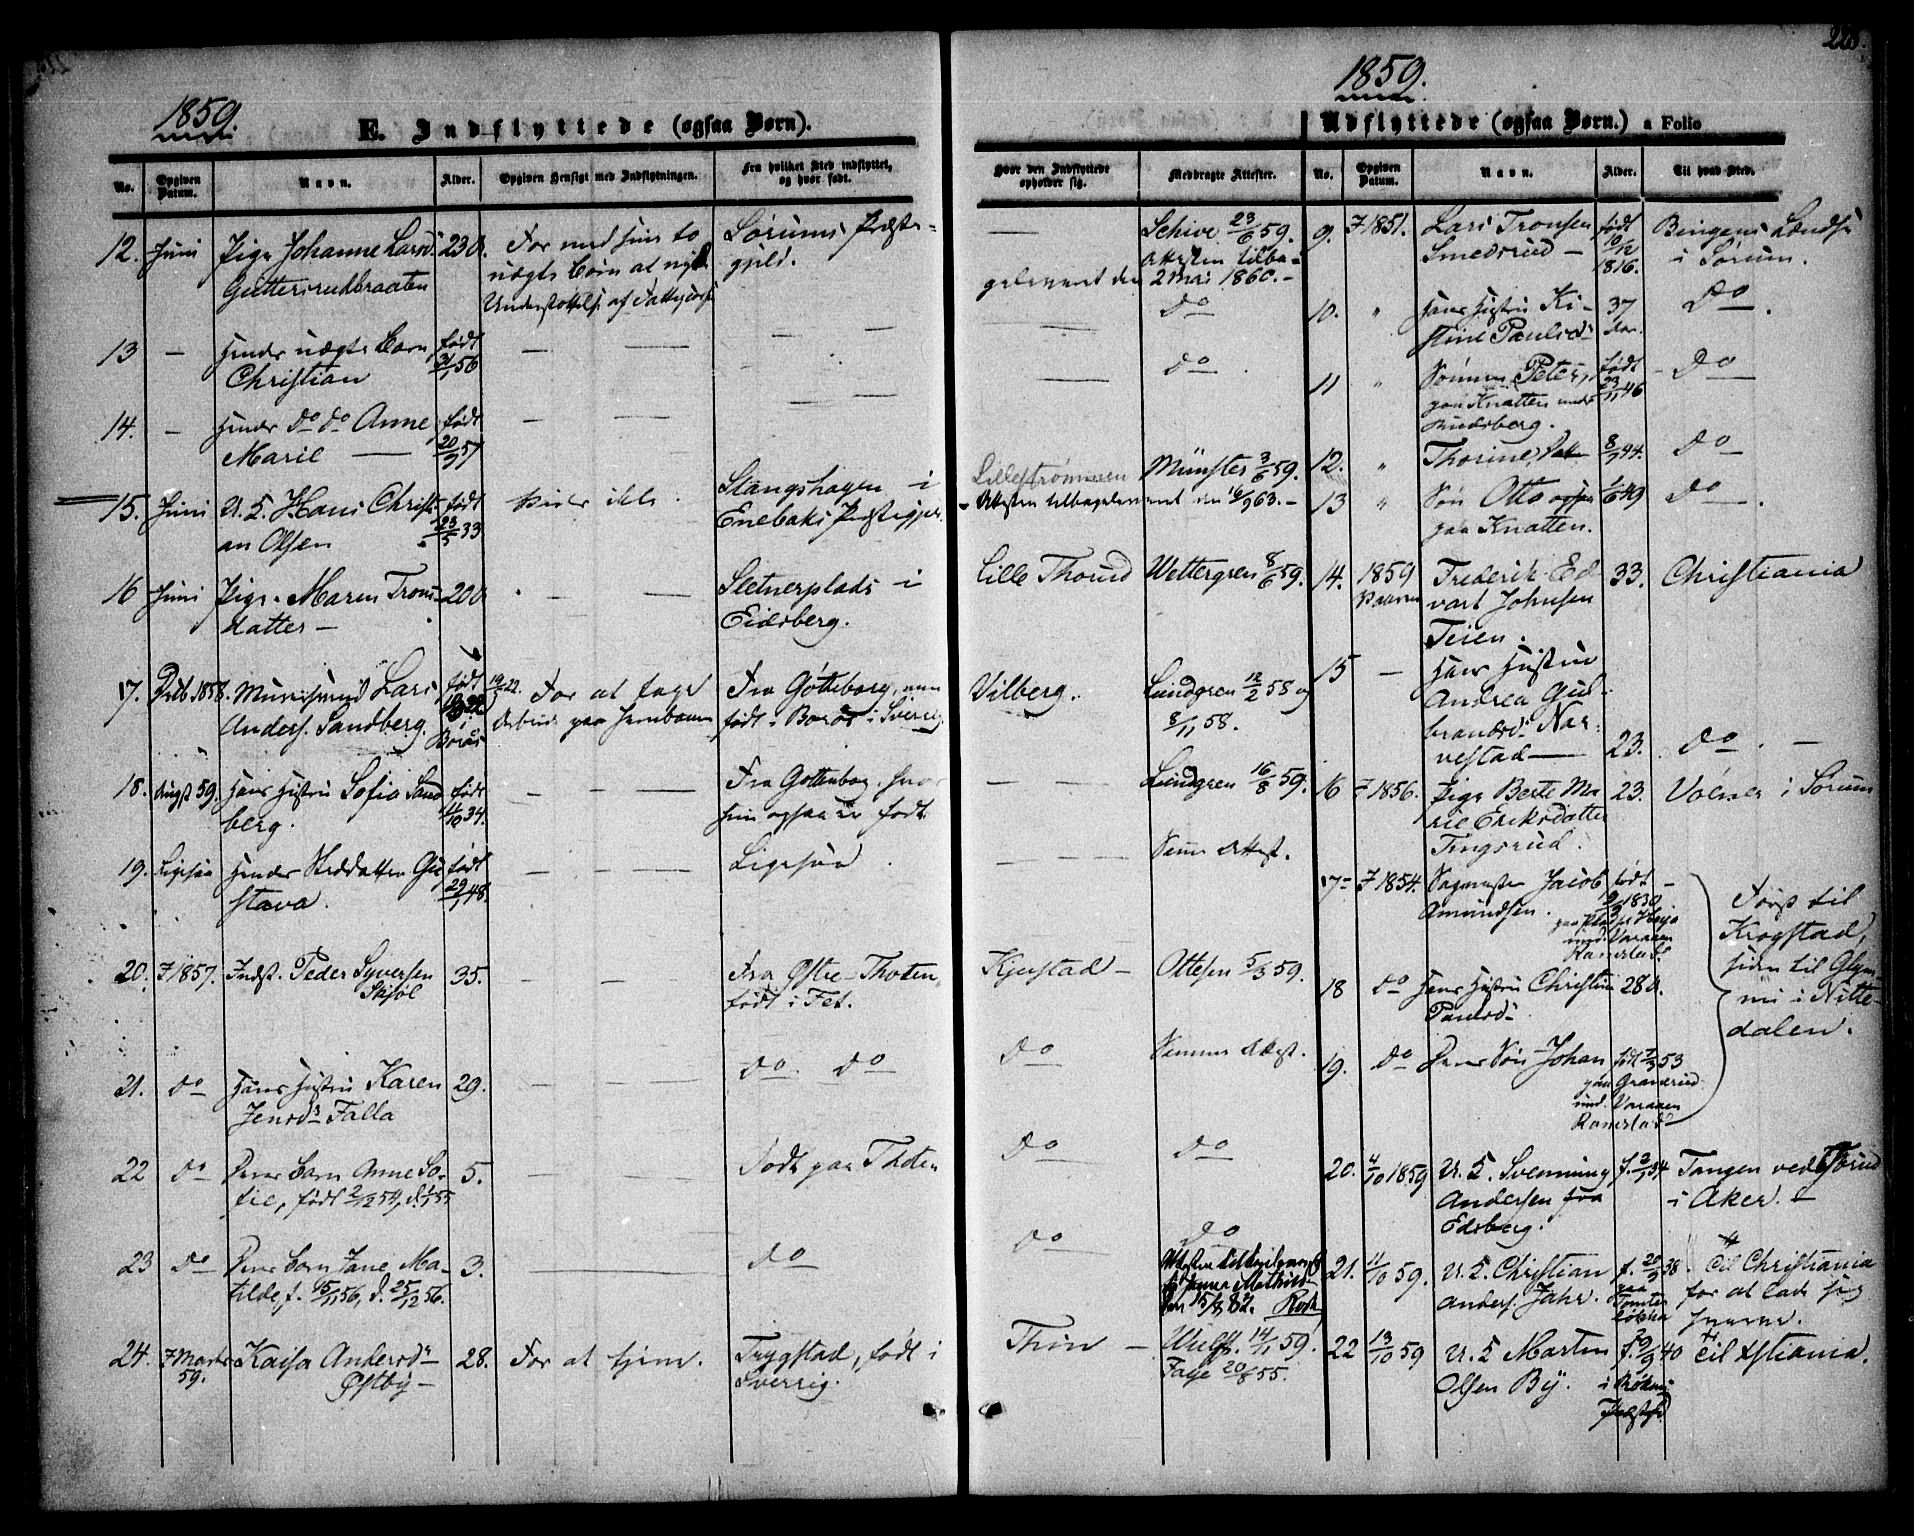 228.
1859.
1859.
E. Indflyttede (ogsaa Børn).
Udflyttede (ogsaa Børn.) a Folio
No.
Opgiven Datum.
Navn.
Alder.
Opgiven Hensigt med Indflytningen.
Fra hvilket Sted indflyttet, og hvor født.
Hvor den Indflyttede opholder sig.
Medbragte Attester.
No.
Opgiven Datum.
Navn.
Alder.
Til hvad Sted.
12. Juni Pige Johanne Larsd 23 a. For med sine to Sørums Præste-
Gutterudbraaten uægte Børn at nyde gjeld.
Understøttelse af
— Schive 23/6 59.
Attesten tilba-
geleveret den 2 Mai 1860. —
13 — Hendes uægte Barn født — — — —
Christian 31/1 56
— do
14. — Hendes do do Anne født — — — —
Marie — 20/9 57
— do
15. Juni U. K. Hans Christi- født Vides ikke. Stangshagen i
an Olsen 23/5 33 Enebaks Præstegj.
Lillestrømmen Münster 3/6 59.
Attesten tilbageleveret den 63. —
16 Juni Pige Maren Trons- 20 a — — Sletnerplads i
datter — Eidsberg.
Lille Thorud Wettergren 8/6 59.
17. 1858. Lars født For at tage Fra Götteborg, men
Anders. Sandberg. Borås Arbeide paa Jernbanen født i Borås i Sverrig
Vilberg. Lundgren 12/2 58 og
8/11 58.
18. August 59. Hans Hustru Sofia Sand- født — — — Fra Gotteborg, hvor
berg. 4/10 34. hun ogsaa er født
— — Lundgren 16/8 59.
19. Ligesaa Hendes Steddatter Gu- født — — — Ligesaa
stava. 29/1 48.
— — — Samme Attest.
20. F 1857. Indst. Peder Syversen 35. — — Fra Østre-Thoten,
Skjøl født i Fet.
Kjustad — Ottesen 5/3 59.
21. do Hans Hustru Karen 29. — — — do do
Jensd Falla
do Samme Attest.
22 do Deres Barn Anne So- 5. — — — Født paa Thoten
fie, født 2/12 54, d. 1/1 55
do do
23 do Deres Barn Jane Ma- 3. — do
tilde, f. 15/11 56, d. 25/12 56.
do do
Mathilde
den 15/8 82.
24. F Marts Kaisa Andersd 28. For at tjene. Trygstad, født i
59. Østby — Sverrig.
Thin — Wulff. 14/1 59.
Faye 20/8 55.
9. F 1851. Lars Tronsen født Bingens Lændse
Smedsrud — 10/12 1816. i Sørum.
10. " Hans Hustru Ki- 37 do.
stine Paulsd Aar.
11 " Sønnen Peter, født — do
paa Knatten under 23/11 46
12. " Thorine, Dat 8/1 44. do
13 " Søn Otto ogsaa 1/6 49 do.
paa Knatten.
14. 1859 Frederik Ed- 33. Christiania
vart Johnsen
Teien.
15 — Hans Hustru
Andrea Gul-
brandsd Nar-
vestad — 23. do. —
16 F 1856. Pige Berte Ma- 23. Vølner i Sørum
rie Eriksdatter
Tingsrud.
17 F 1854. Sagmester Jacob født — Først til
Amundsen. 1830 Krogstad,
siden til Glom-
18 do Hans Hustru Christine 28 a. mi i Nitte-
Paulsd dalen.
19. do Deres Søn Johan født 53
paa Granerud
und. Varaaen
Ramstad
20. 4/10 1859 U. K. Svenning f. 2/1 34 Tangen ved
Andersen fra i Aker.
Edsberg.
21. 11/10 59. U. K. Christian f. 20/9 38. Til Christiania
Anders. Jahr. paa for at lade sig
Tomter
løkka
22 13/10 59 U. K. Marten f. 29/9 40 Til Xstiania.
Olsen By. i